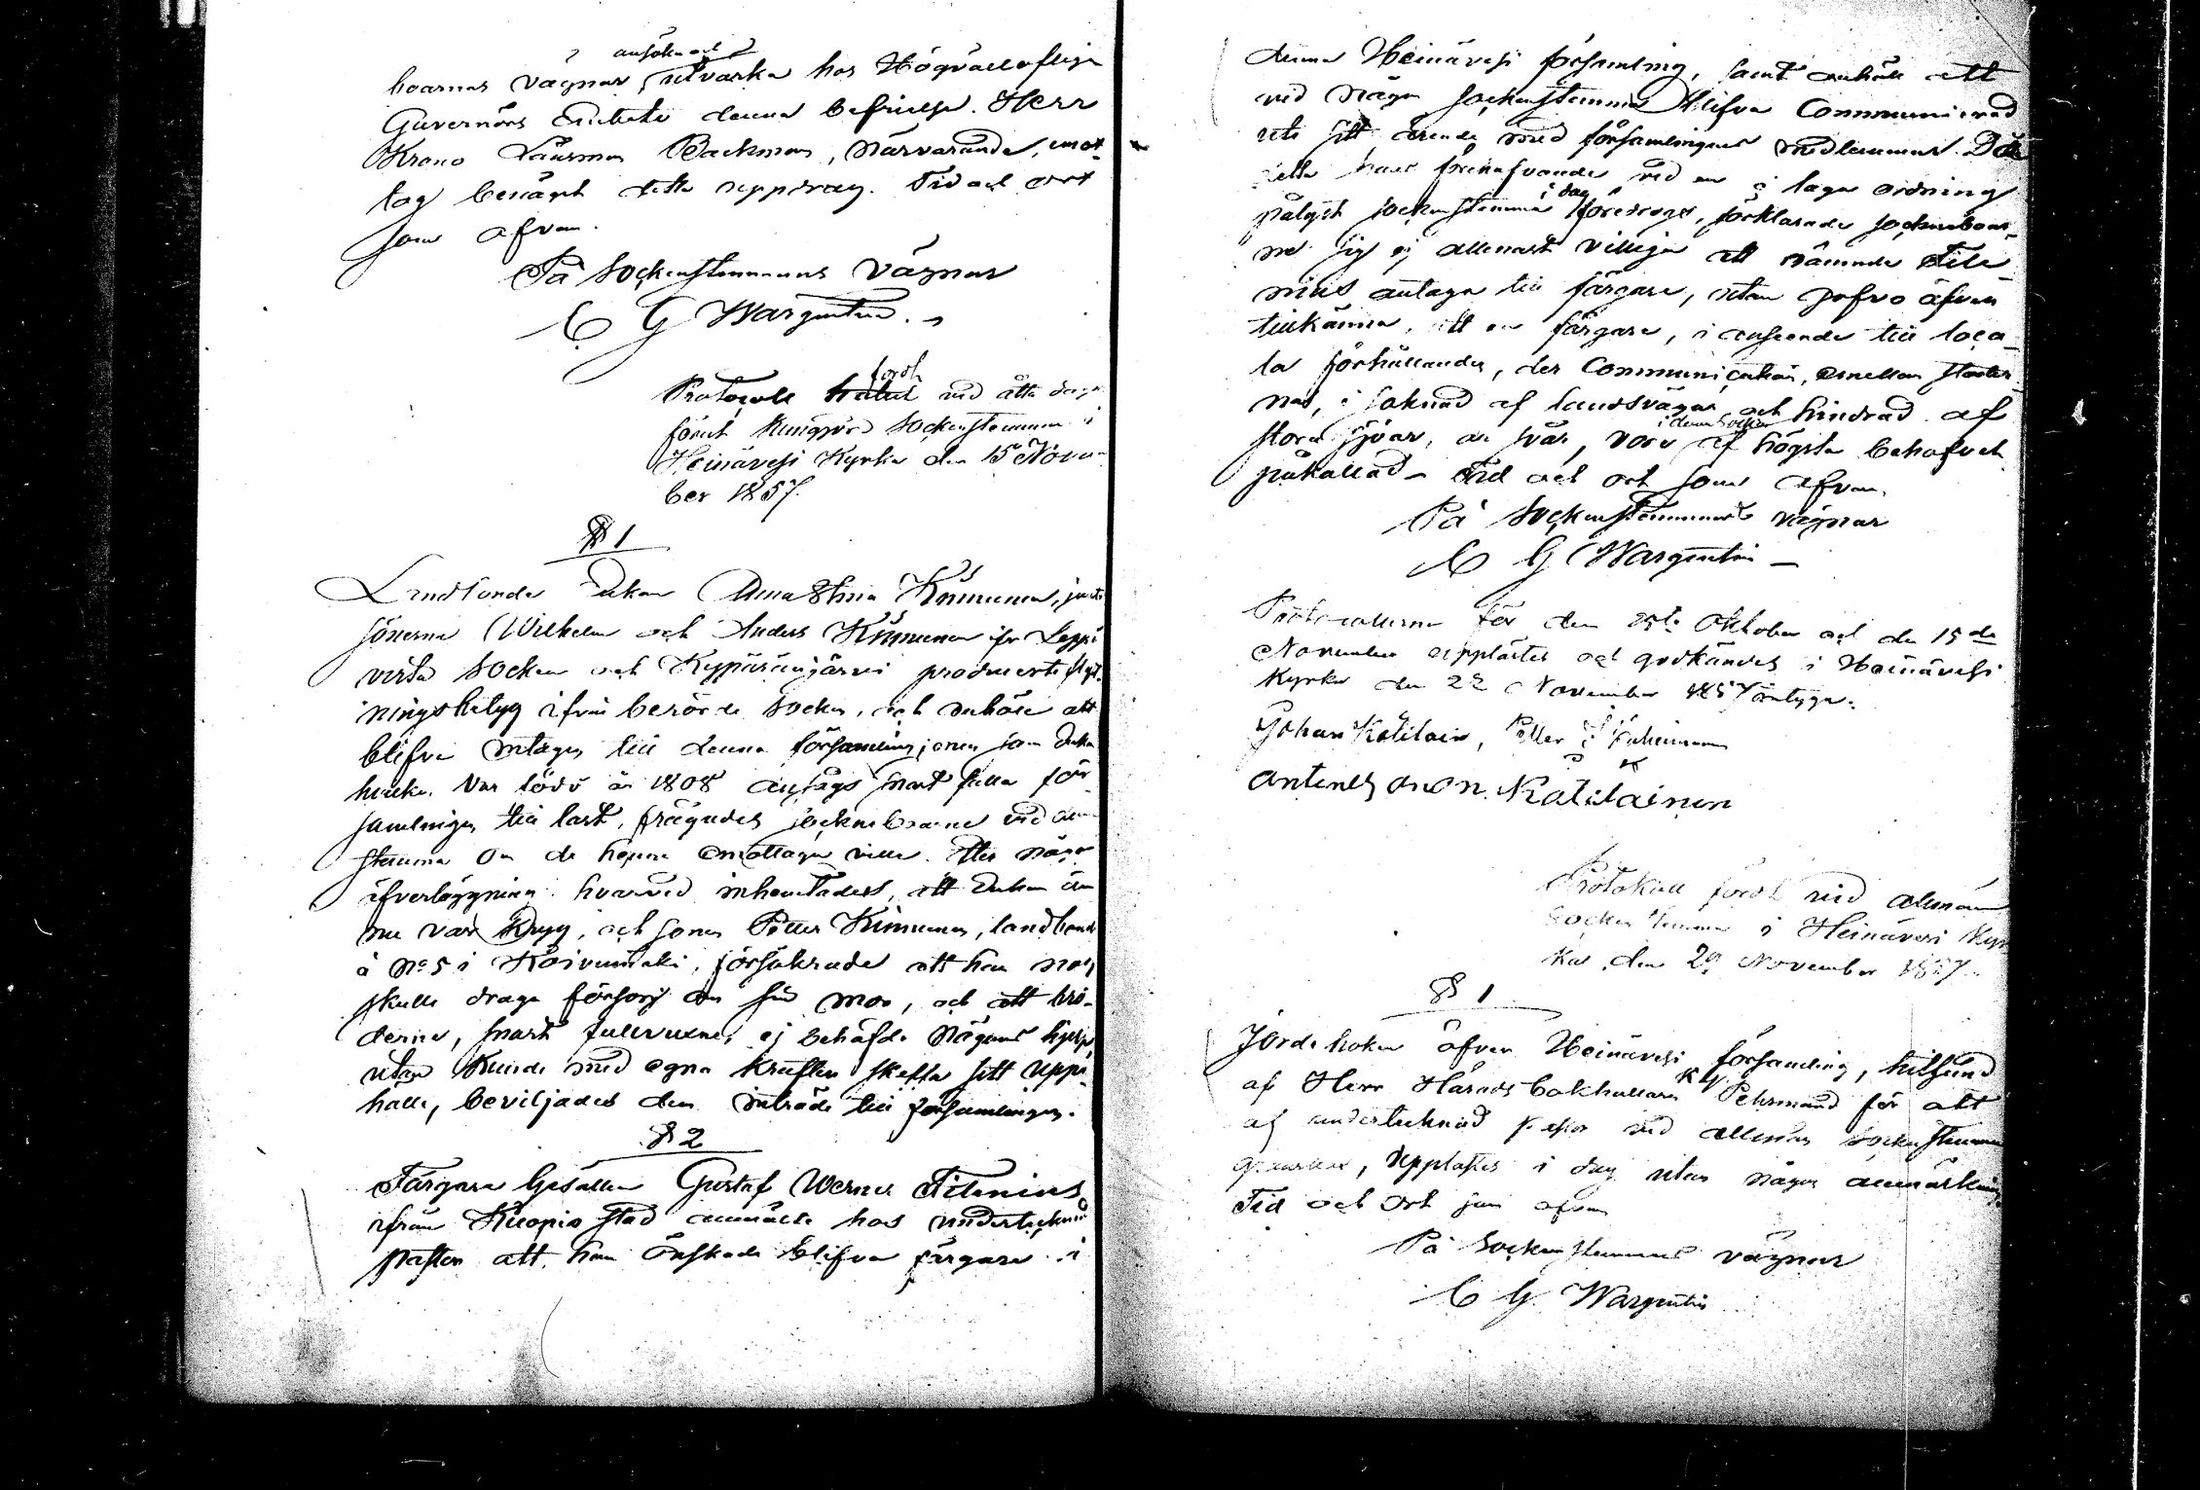 boarnas vägnar ansöka och utverka hos Högvälloflige
Guvernörs Embetet denna befrielse. Herr
Krono Länsman Backman, närvarande, emot-
tog benäget detta uppdrag. Tid och ort
som ofvan.
På Sockenstemmans Vägnar
C G Wargentin
Protocoll fördt vid åtta dagar
förut kungjord Sockenstemma i
Heinävesi Kyrka den 15 Novem-
ber 1857.
§ 1
Landbonde Enkan Anna Stina Kinnunen, jemte
sönerna Wilhelm och Anders Kinnunen ifrån Leppä-
virta Socken och Kypäräinjärvi producerte flytt-
ningsbetyg ifrån berörde Socken, och anhöll att
blifva intagen till denna församling; som Enkan
hvilken var född år 1808 antogs snart falla för-
samlingen till last, frågades sockneboarne vid denna
stemma om de henne emottaga ville. Efter någon
öfverläggning hvarvid inhemtades, att Enkan än-
nu var kryg, och sonen Petter Kinnunen, landbonde
å No 5 i Koivumäki, försäkrade att han nog
skulle draga försorg om sin mor, och att brö-
derne, snart fullvuxne, ej behöfde någons hjelp,
utan kunde med egna krafter skaffa sitt uppe-
hälle, beviljades den inträde till församlingen.
§ 2
Färgare Gesällen Gustaf Werner Titenius
ifrån Kuopio stad anmälte hos undertecknad
Pastor att han önskade blifva färgare i
denna Heinävesi församling, samt anhöll att
vid någon Sockenstemma blifva communicerad
sitt ärende med församlingens medlemmar. Då
detta hans förehafvande vid en i laga ordning
pålyst sockenstemma i dag föredrogs, förklarade sockneboar-
ne sig ej allenast villiga att nämnde Tite-
nius antaga till färgare, utan gofvo äfven
tillkänna, att en färgare, i anseende till loca-
la förhållanden, der Communication, emellan städer-
na, i saknad af landsvägar och hindrad af
stora sjöar, är svår, vore i denna Socken af högsta behofvet
påkallad – Tid och ort som ofvan.
På Sockenstemmans vägnar
C G Wargentin
Protocollerne för den 25te Oktober och den 15de
November upplästes och godkändes i Heinävesi
Kyrka den 22 November 1857 intyga:
Johan Kotilain, Petter
antines anon. Kotilainen
Protokoll fördt vid allmän
Sockenstemma i Heinävesi Kyr-
ka den 29 November 1857.
§ 1
Jordeboken öfver Heinävesi församling, tillsänd
af Herr Härads bokhållaren K W Pehrmand för att
af undertecknad Pastor vid allmän Sockenstemma
granskas, upplästes i dag utan någon anmärkning
Tid och Ort som ofvan
På Sockenstemmans vägnar
C G. Wargentin